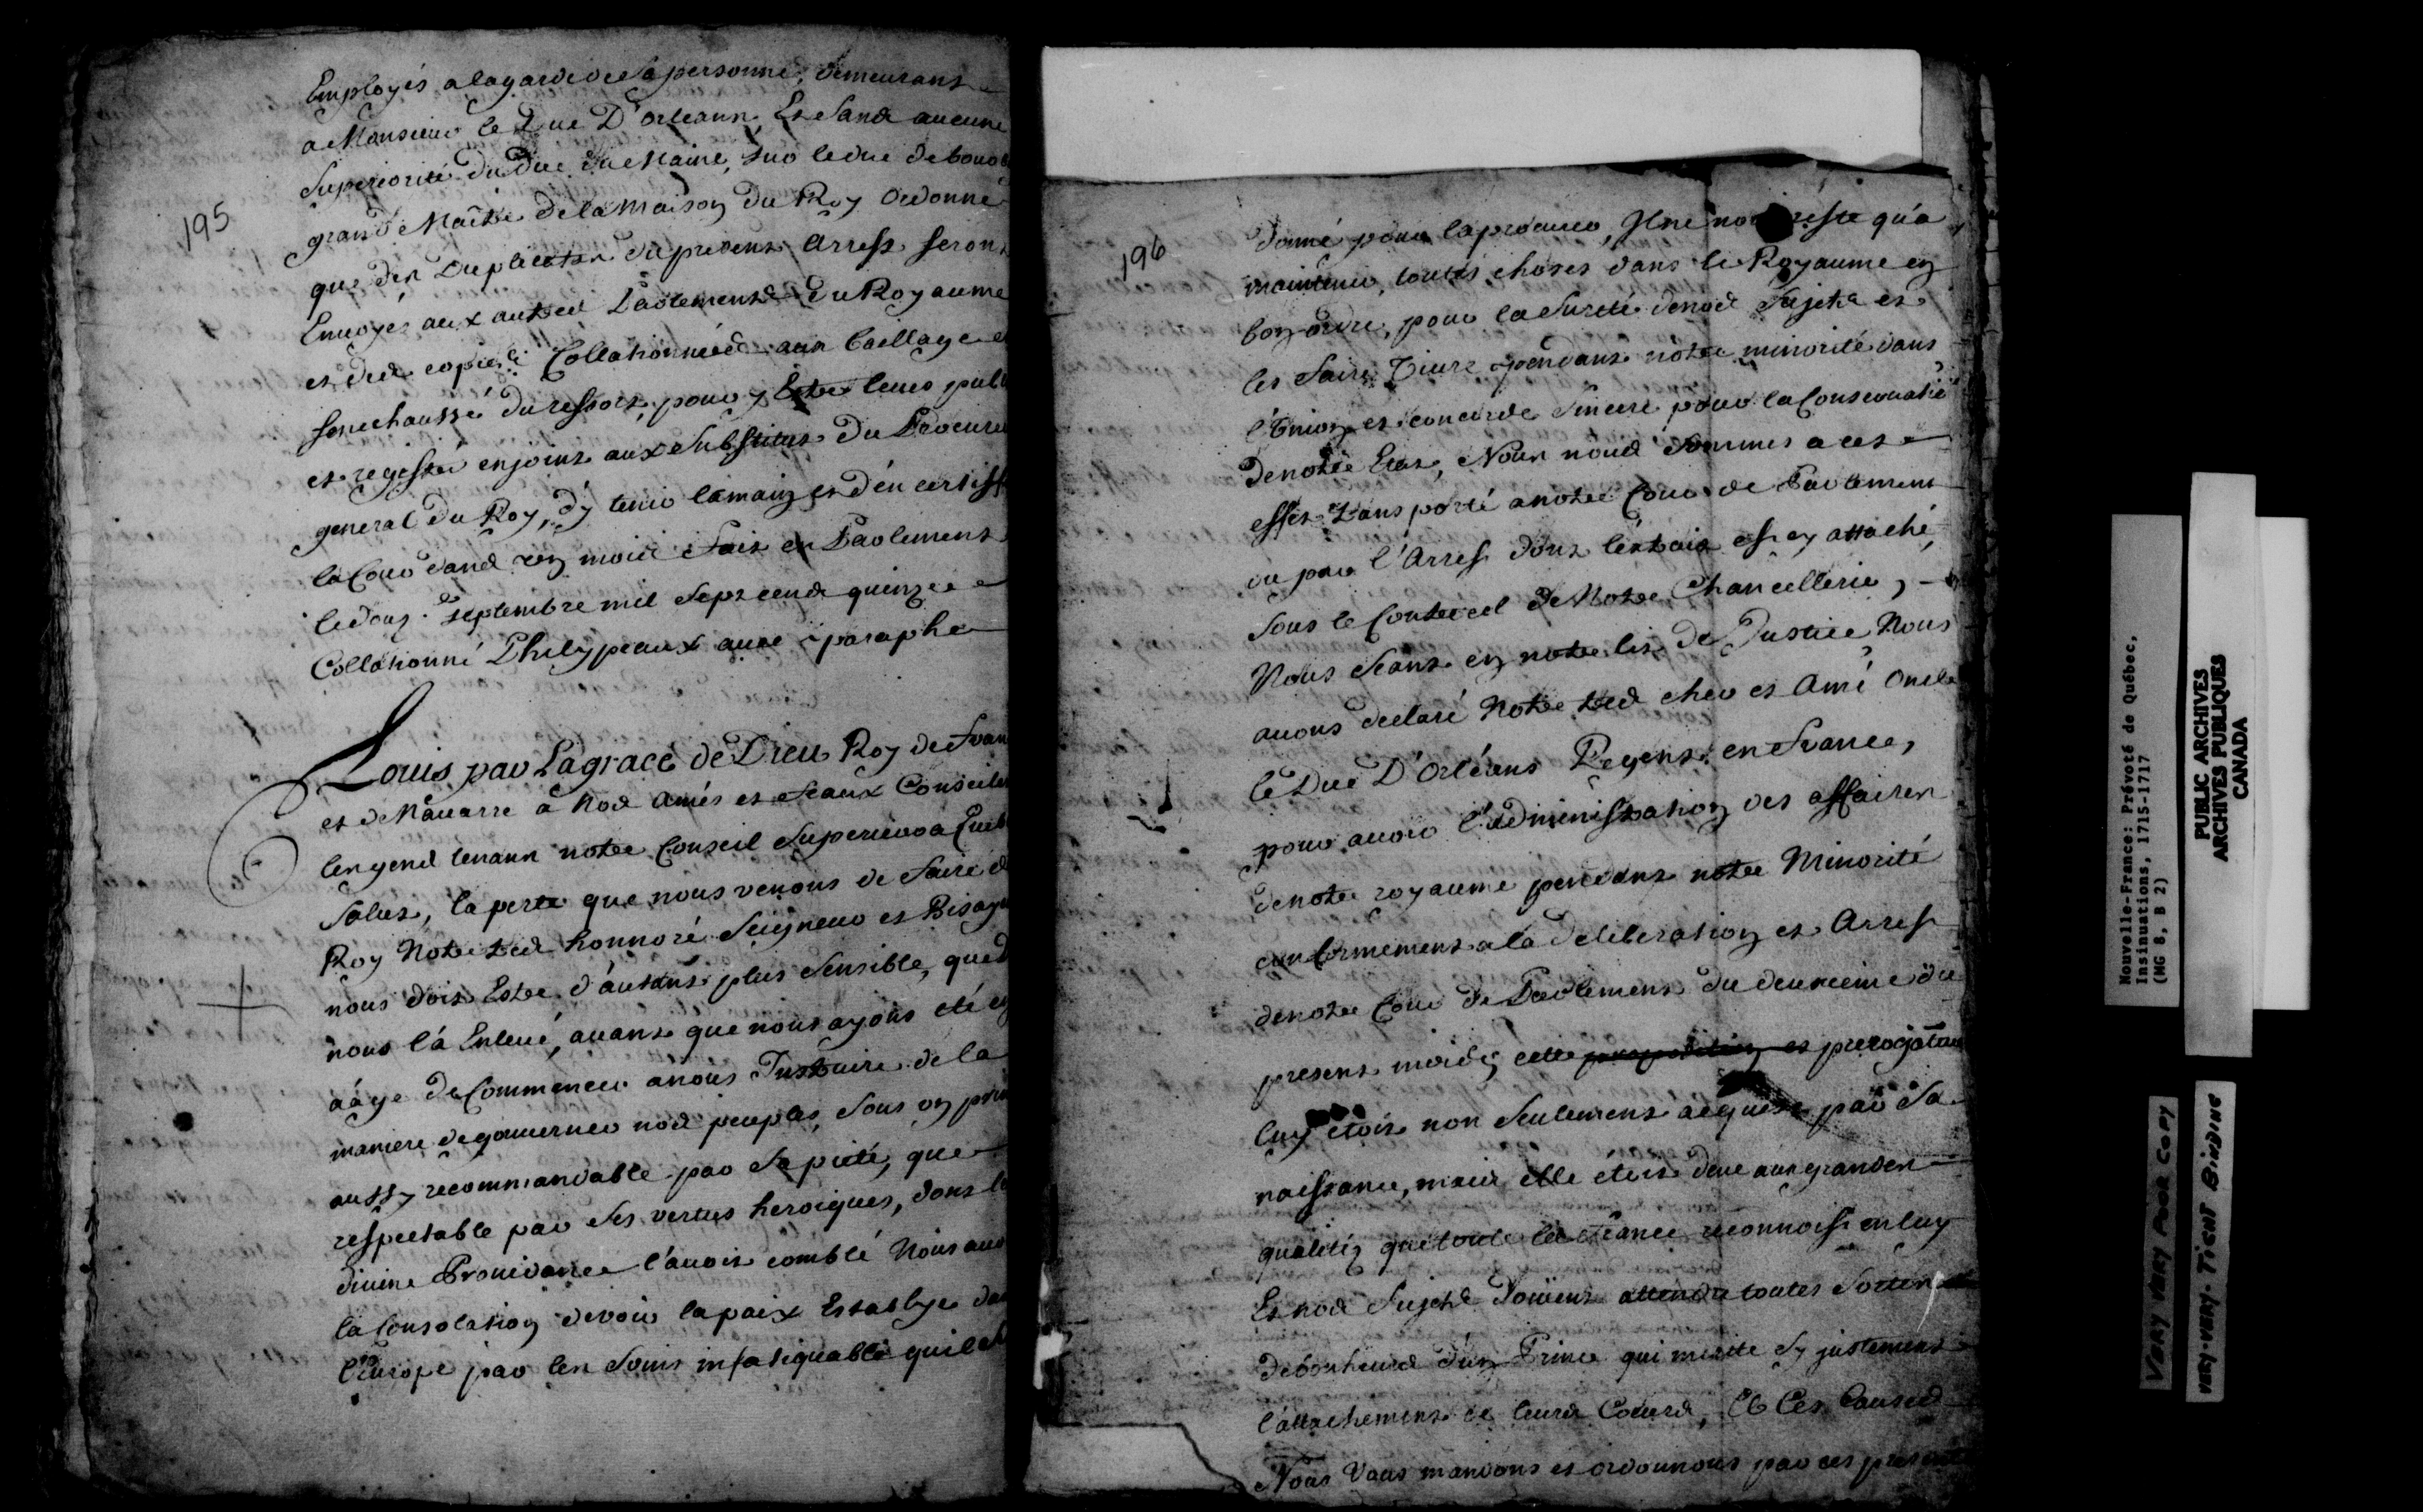 195
Employés a la garde de Sa personne, demeurans
a Monsieur le Duc D'orleans, Et Sans aucune
Superiorité du Duc du Maine, Sur le duc de bourb
grand Maître de la Maison du Roy Ordonne
que des Duplicatas du present Arrest seront
Envoyés aux autres Parlements du Royaume
et des copies Collationnées aux baillage et
senechaussé du ressort, pour y Estre leues publ
et registré enjoint aux Substitus du Procureu
general du Roy, d'y tenir la main et d'en certiff
la Cour dans un mois Fait en Parlement
le douz.e septembre mil Sept cens quinze
Collationné Phelypeaux avec paraphe
Louis par La grace de Dieu Roy de Fran
et de Navarre a Nos Amés et Feaux Conseille
les gens tenans notre Conseil Superieur a Queb
Salut, la perte que nous venons de faire d
Roy Notre tres honnoré Seigneur et Bisayeu
nous doit Estre d'autant plus Sensible, que D
nous l'a Enlevé, avant que nous ayons eté en
aage de Commencer a nous Instruire de la
maniere de gouverner nos peuples, Sous un prin
aussy recommandable par Sa pieté, que
respectable par Ses vertus heroiques, dont la
divine Providance l'avoit comblé Nous avo
la Consolation de voir la paix Establye da
l'Europe par les Soins infatiguable quil s'e
196
donné pour la procurer, Il ne nous reste qu'a
maintenir, toutes choses dans le Royaume en
bon ordre, pour la Sureté de nos Sujets et
les faire Vivre pendant nôtre minorité dans
l'Union et concorde Sincere pour la Conservatio
De notre Etat, Nous nous Sommes a cet
effet Transporté a notre Cour de Parlement
ou par l'Arrest dont l'extrait est cy attaché
Sous le Contrecel de Notre Chancellerie,
Nous Seant en notre lit de Justice Nous
avons declaré Notre tres cher et Amé Oncle
le Duc D'Orléans Regent en France,
pour avoir l'administration des affaires
de notre royaume pendant notre Minorité
conformement a la deliberation et Arrest
de notre Cour de Parlement du deuxieme du
present mois, cette et prerogative
luy étoit non Seulement acquise par Sa
naissance, mais elle étoit deue aux grandes
qualités que toute la France reconnoist en luy
Et nos Sujets doivent attendre toutes Sortes
de bonheurs d'un Prince qui merite Sy justement
l'attachement de leurs Coeurs, A Ces Causes
Nous Vous mandons et ordonnons par ces present
Nouvelle-France: Prévoté de Québec,
Insinuations, 1715-1717
(MG 8, B 2)
PUBLIC ARCHIVES
ARCHIVES PUBLIQUES
CANADA
VERY VERY POOR COPY
VERY-VERY-TIGHT BINDING